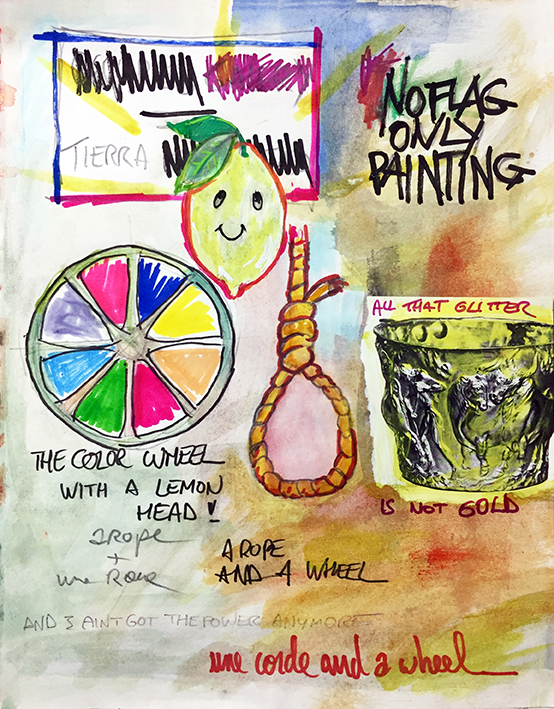 NO FLAG
ONLY
PAINTING
TIERRA
ALL THAT GLITTER
IS NOT GOLD
THE COLOR WHEEL
WITH A LEMON
HEAD!
A ROPE
+
une Roue
A ROPE
AND A WHEEL
AND I AINT GOT THE POWER ANYMORE
une corde and a wheel